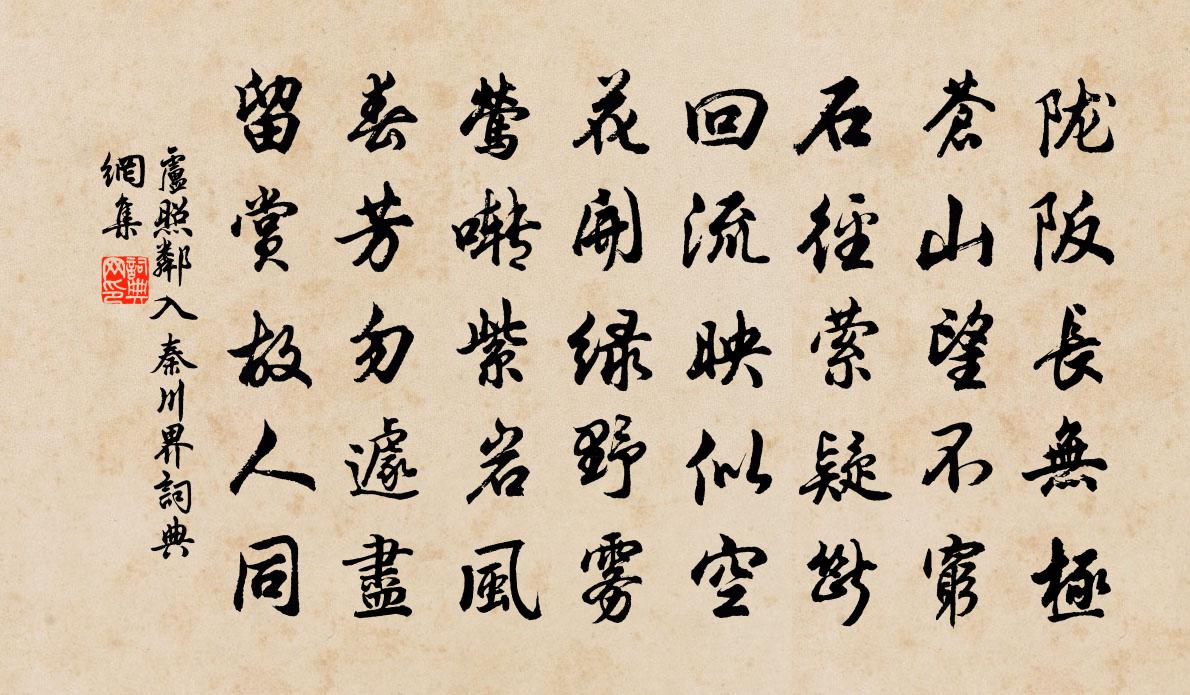 陇阪長無極
蒼山望不窮
石徑萦疑斷
回流映似空
花開绿野雾
鶯啭紫岩風
春芳勿遽盡
留賞故人同
盧照鄰入秦川界詞典
網集
詞典网印